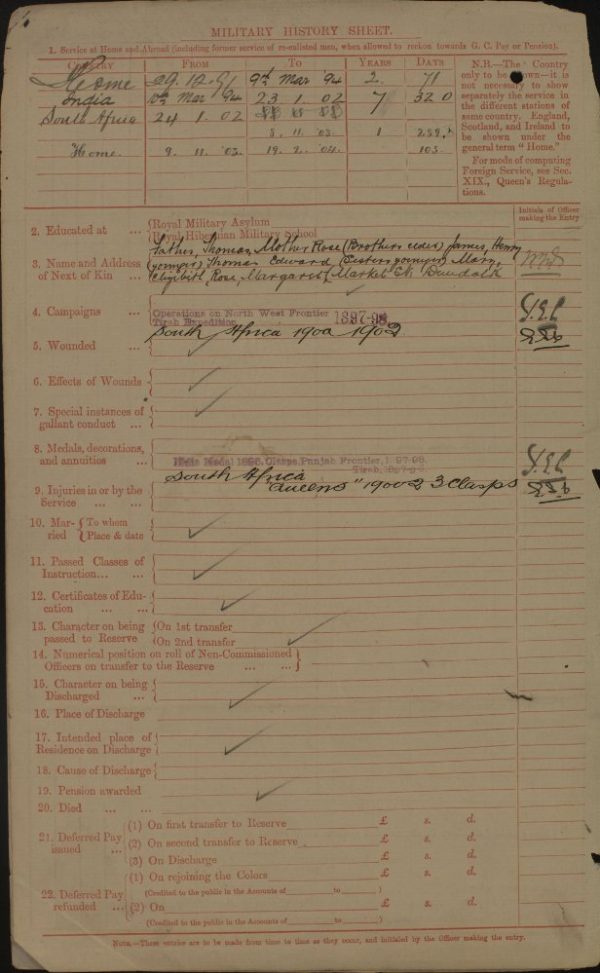 MILITARY HISTORY SHEET.
1. Service at Home and Abroad (including former service of re-enlisted men, when allowed to reckon towards G. C. Pay or Pension).
Country From To Years Days
Home 29. 12. 91 9th Mar 94 2. 71
India 10th Mar 94 23 1. 02 7 320
South Africa 24 1. 02
8. 11 03. 1
Home. 9. 11. 03. 19. 2. 04. 103
N.B.—The Country
only to be shown—it is
not necessary to show
separately the service in
the different stations of
same country. England,
Scotland, and Ireland to
be shown under the
general term "Home."
For mode of computing
Foreign Service, see Sec.
XIX., Queen's Regula-
tions.
Initials of Officer
making the Entry
2. Educated at ... Royal Military Asylum
Royal Hibernian Military School
3. Name and Address
of Next of Kin ...
Father, Thomas, Mother Rose (Brothers elder) James, Henry
(younger) Thomas Edward (Sisters younger) Mary,
Elizibith Rose, Margaret, Market St. Dundalk
4. Campaigns ... Operations on North West Frontier 1897-98.
Tirah Expedition
South Africa 1900 1902
5. Wounded ...
6. Effects of Wounds
7. Special instances of
gallant conduct ...
8. Medals, decorations,
and annuities ...
India Medal 1895. Clasps, Punjab Frontier, 1897-98.
Tirah, 1897-98.
South Africa
"Queens" 1900-2 3 Clasps
9. Injuries in or by the
Service ... ...
10. Mar-
ried
To whom
Place & date
11. Passed Classes of
Instruction... ...
12. Certificates of Edu-
cation ... ...
13. Character on being
passed to Reserve
On 1st transfer
On 2nd transfer
14. Numerical position on roll of Non-Commissioned
Officers on transfer to the Reserve ... ...
15. Character on being
Discharged ...
16. Place of Discharge
17. Intended place of
Residence on Discharge
18. Cause of Discharge
19. Pension awarded
20. Died ... ...
21. Deferred Pay
issued ...
(1) On first transfer to Reserve £ s. d.
(2) On second transfer to Reserve £ s. d.
(3) On Discharge £ s. d.
22. Deferred Pay
refunded ...
(1) On rejoining the Colors £ s. d.
(Credited to the public in the Accounts of to )
(2) On £ s. d.
(Credited to the public in the Accounts of to )
NOTE.—These entries are to be made from time to time as they occur, and initialed by the Officer making the entry.